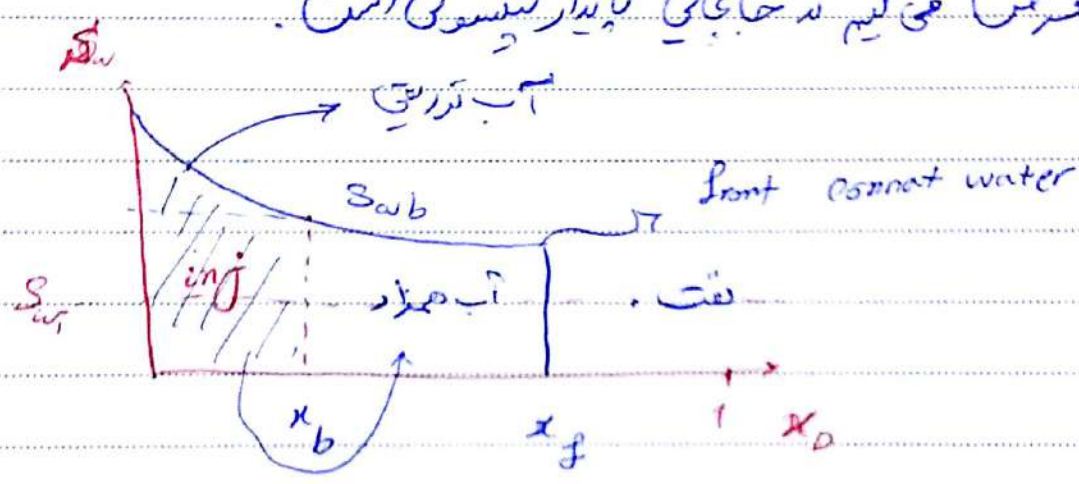 فرض می کنیم که جابجایی پایدار پیستونی است.
Sw
آب تزریقی
Swb
front connat water
Swi
inj
آب همزاد
نفت
xb
xf
1
xD